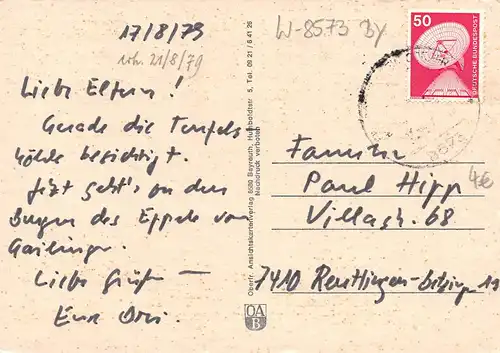 17/8/79
21/8/79
Liebe Eltern!
Gerade die Teufels
höhle besichtigt.
Jetzt geht's an den
Burgen des Eppele von
Gailingen.
Liebe Grüße –
Eure
W-8573 By
50
DEUTSCHE BUNDESPOST
8573
Familie
Paul Hipp
Villastr. 68
4€
7410 Reutlingen-Betzingen 11
Oberfr. Ansichtskartenverlag 8580 Bayreuth, Humboldtstr. 5, Tel. 09 21 / 6 41 26
Nachdruck verboten
OA
B